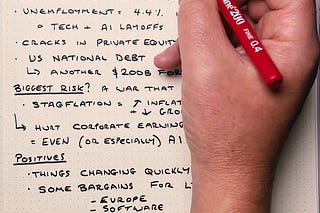 · UNEMPLOYMENT = 4.4%
○ TECH + AI LAYOFFS
· CRACKS IN PRIVATE EQUITY
· US NATIONAL DEBT
↳ ANOTHER $200B FOR
BIGGEST RISK? A WAR THAT
· STAGFLATION = ↑ INFLA
+ ↓ GRO
↳ HURT CORPORATE EARNING
= EVEN (OR ESPECIALLY) A.I.
POSITIVES
· THINGS CHANGING QUICKLY
· SOME BARGAINS FOR
- EUROPE
- SOFTWARE
200 FINE 0.4